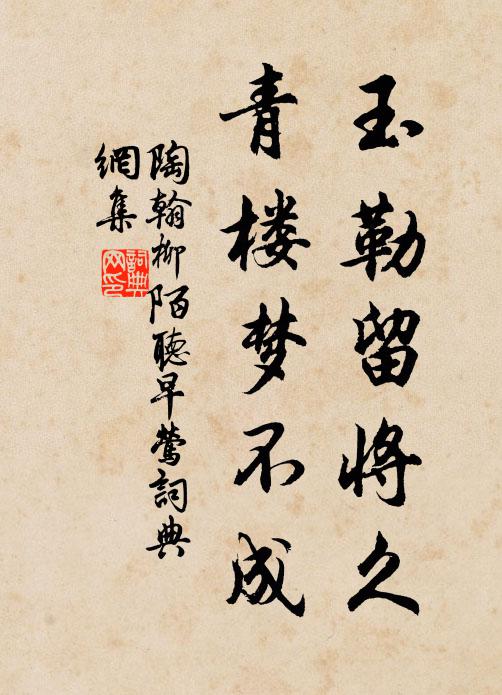 玉勒留将久
青楼梦不成
陶翰柳陌聽早鶯詞典
網集
詞典
网印